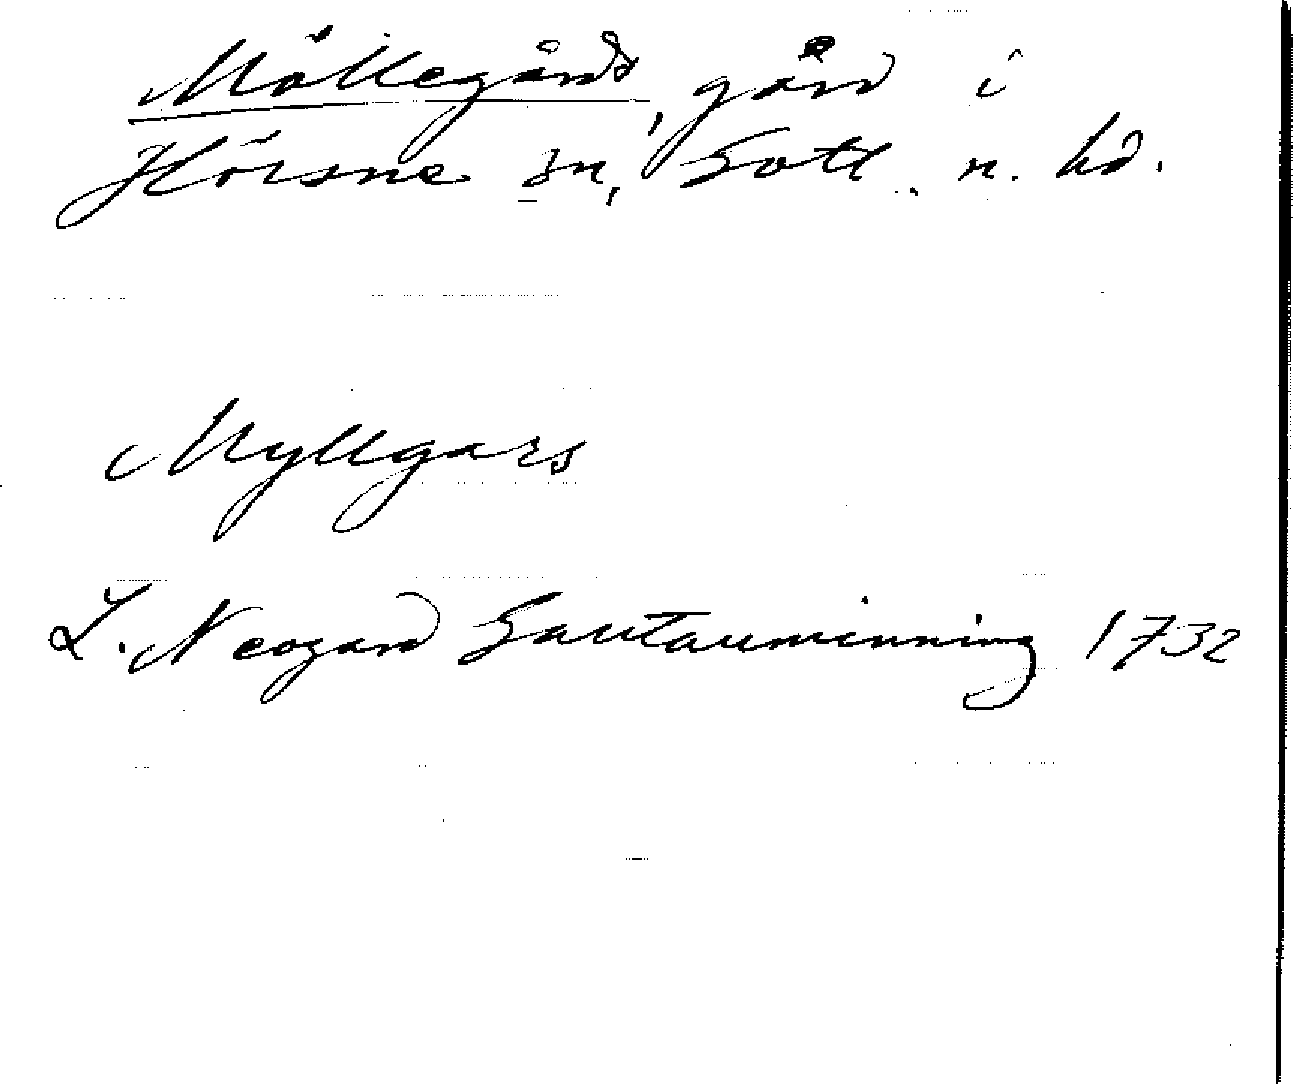 Möllegårds, gård i
Hörsne sn, Gotl. n. hd.
Myllgars
L. Neogard Gautauminning 1732